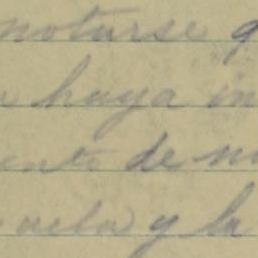 notarse q
haya in
ente de m
uela y la